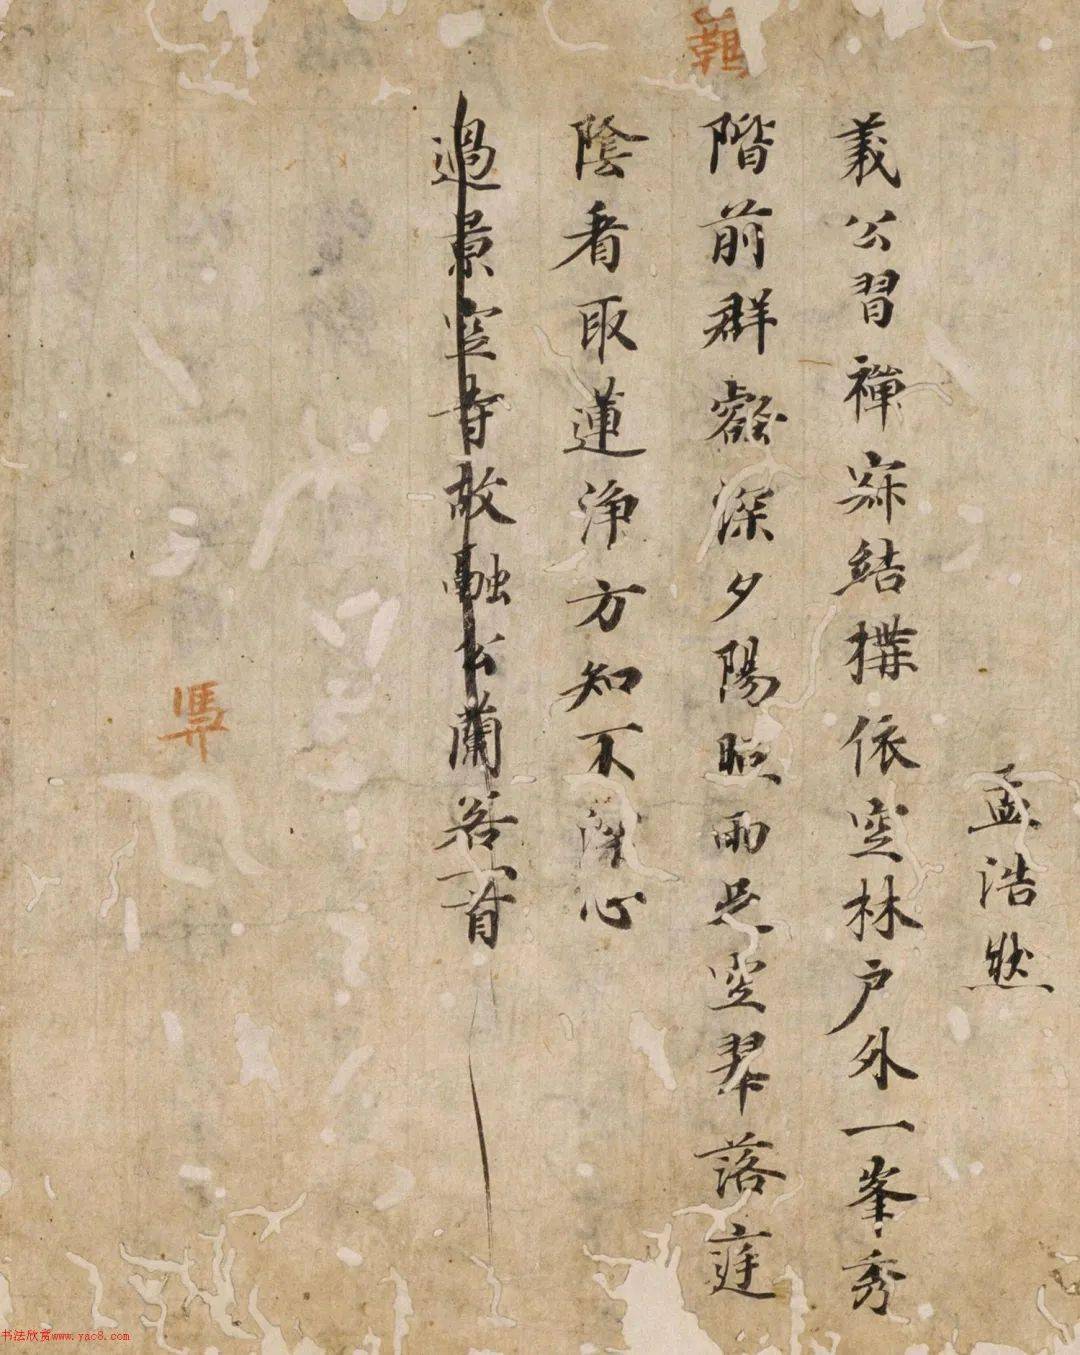 孟浩然
義公習禅寂結搆依空林户外一峯秀
階前群壑深夕陽照雨足空翠落庭
陰看取蓮浄方知不深心
過景空寺故融公蘭若一首
书法欣赏www.yac8.com